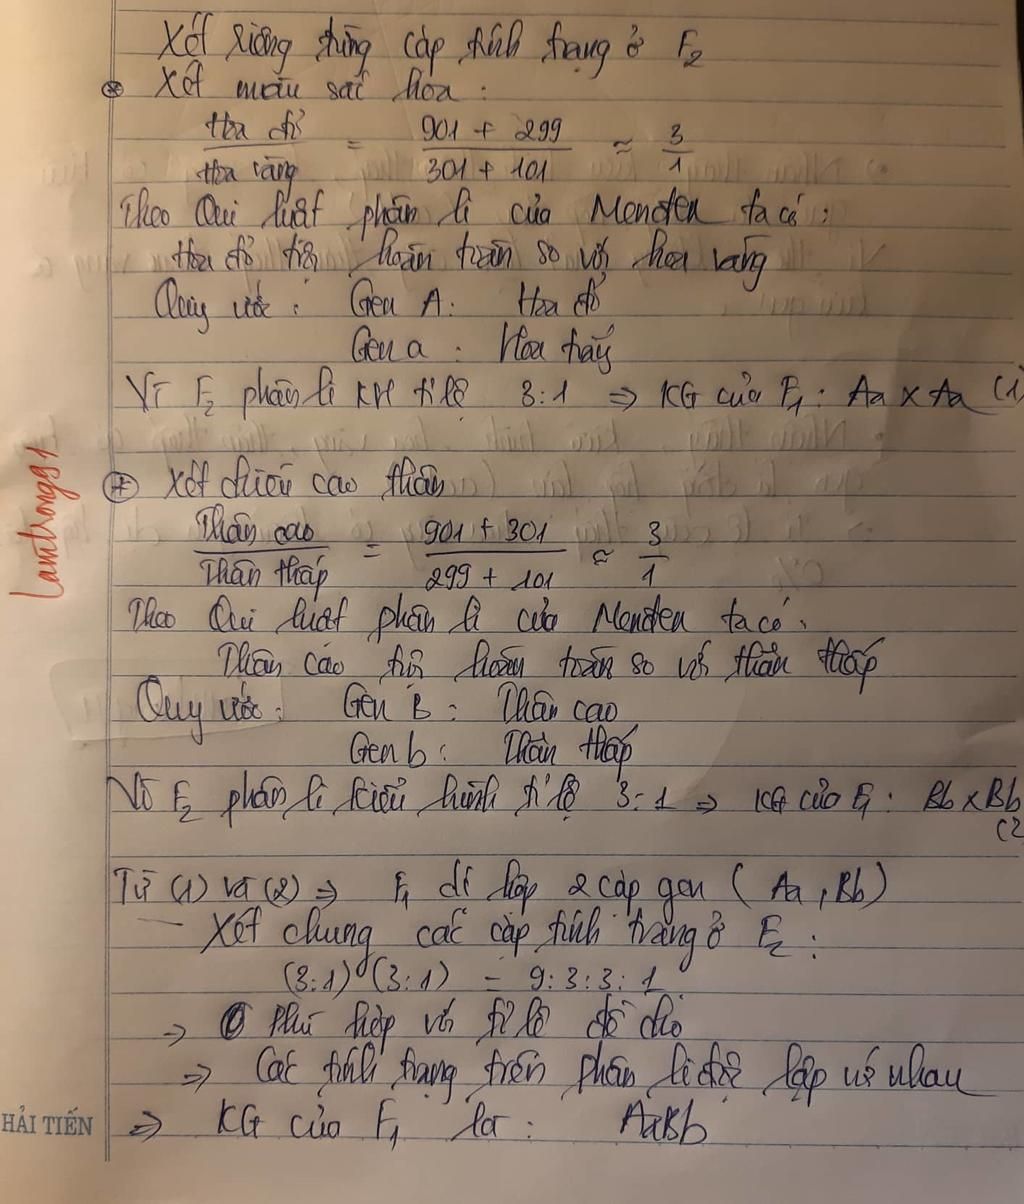 Xét riêng từng cặp tính trạng ở F₂
* Xét màu sắc hoa :
Hoa đỏ / Hoa vàng = 901 + 299 / 301 + 101 ≈ 3/1
Theo Qui luật phân li của Menđen ta có :
Hoa đỏ trội hoàn toàn so với hoa vàng
Quy ước : Gen A : Hoa đỏ
Gen a : Hoa trắng
Vì F₂ phân li KH tỉ lệ 3:1 => KG của F₁ : Aa x Aa (1)
* Xét chiều cao thân
Thân cao / Thân thấp = 901 + 301 / 299 + 101 ≈ 3/1
Theo Qui luật phân li của Menđen ta có :
Thân cao trội hoàn toàn so với thân thấp
Quy ước : Gen B : Thân cao
Gen b : Thân thấp
Vì F₂ phân li kiểu hình tỉ lệ 3:1 => KG của F₁ : Bb x Bb
(2
Từ (1) và (2) => F₁ dị hợp 2 cặp gen ( Aa , Bb )
- Xét chung các cặp tính trạng ở F₂ :
(3:1) (3:1) = 9:3:3:1
=> Phù hợp với tỉ lệ đề cho
=> Các tính trạng trên phân li độc lập với nhau
=> KG của F₁ là : AaBb
Lamtrong91
HẢI TIẾN